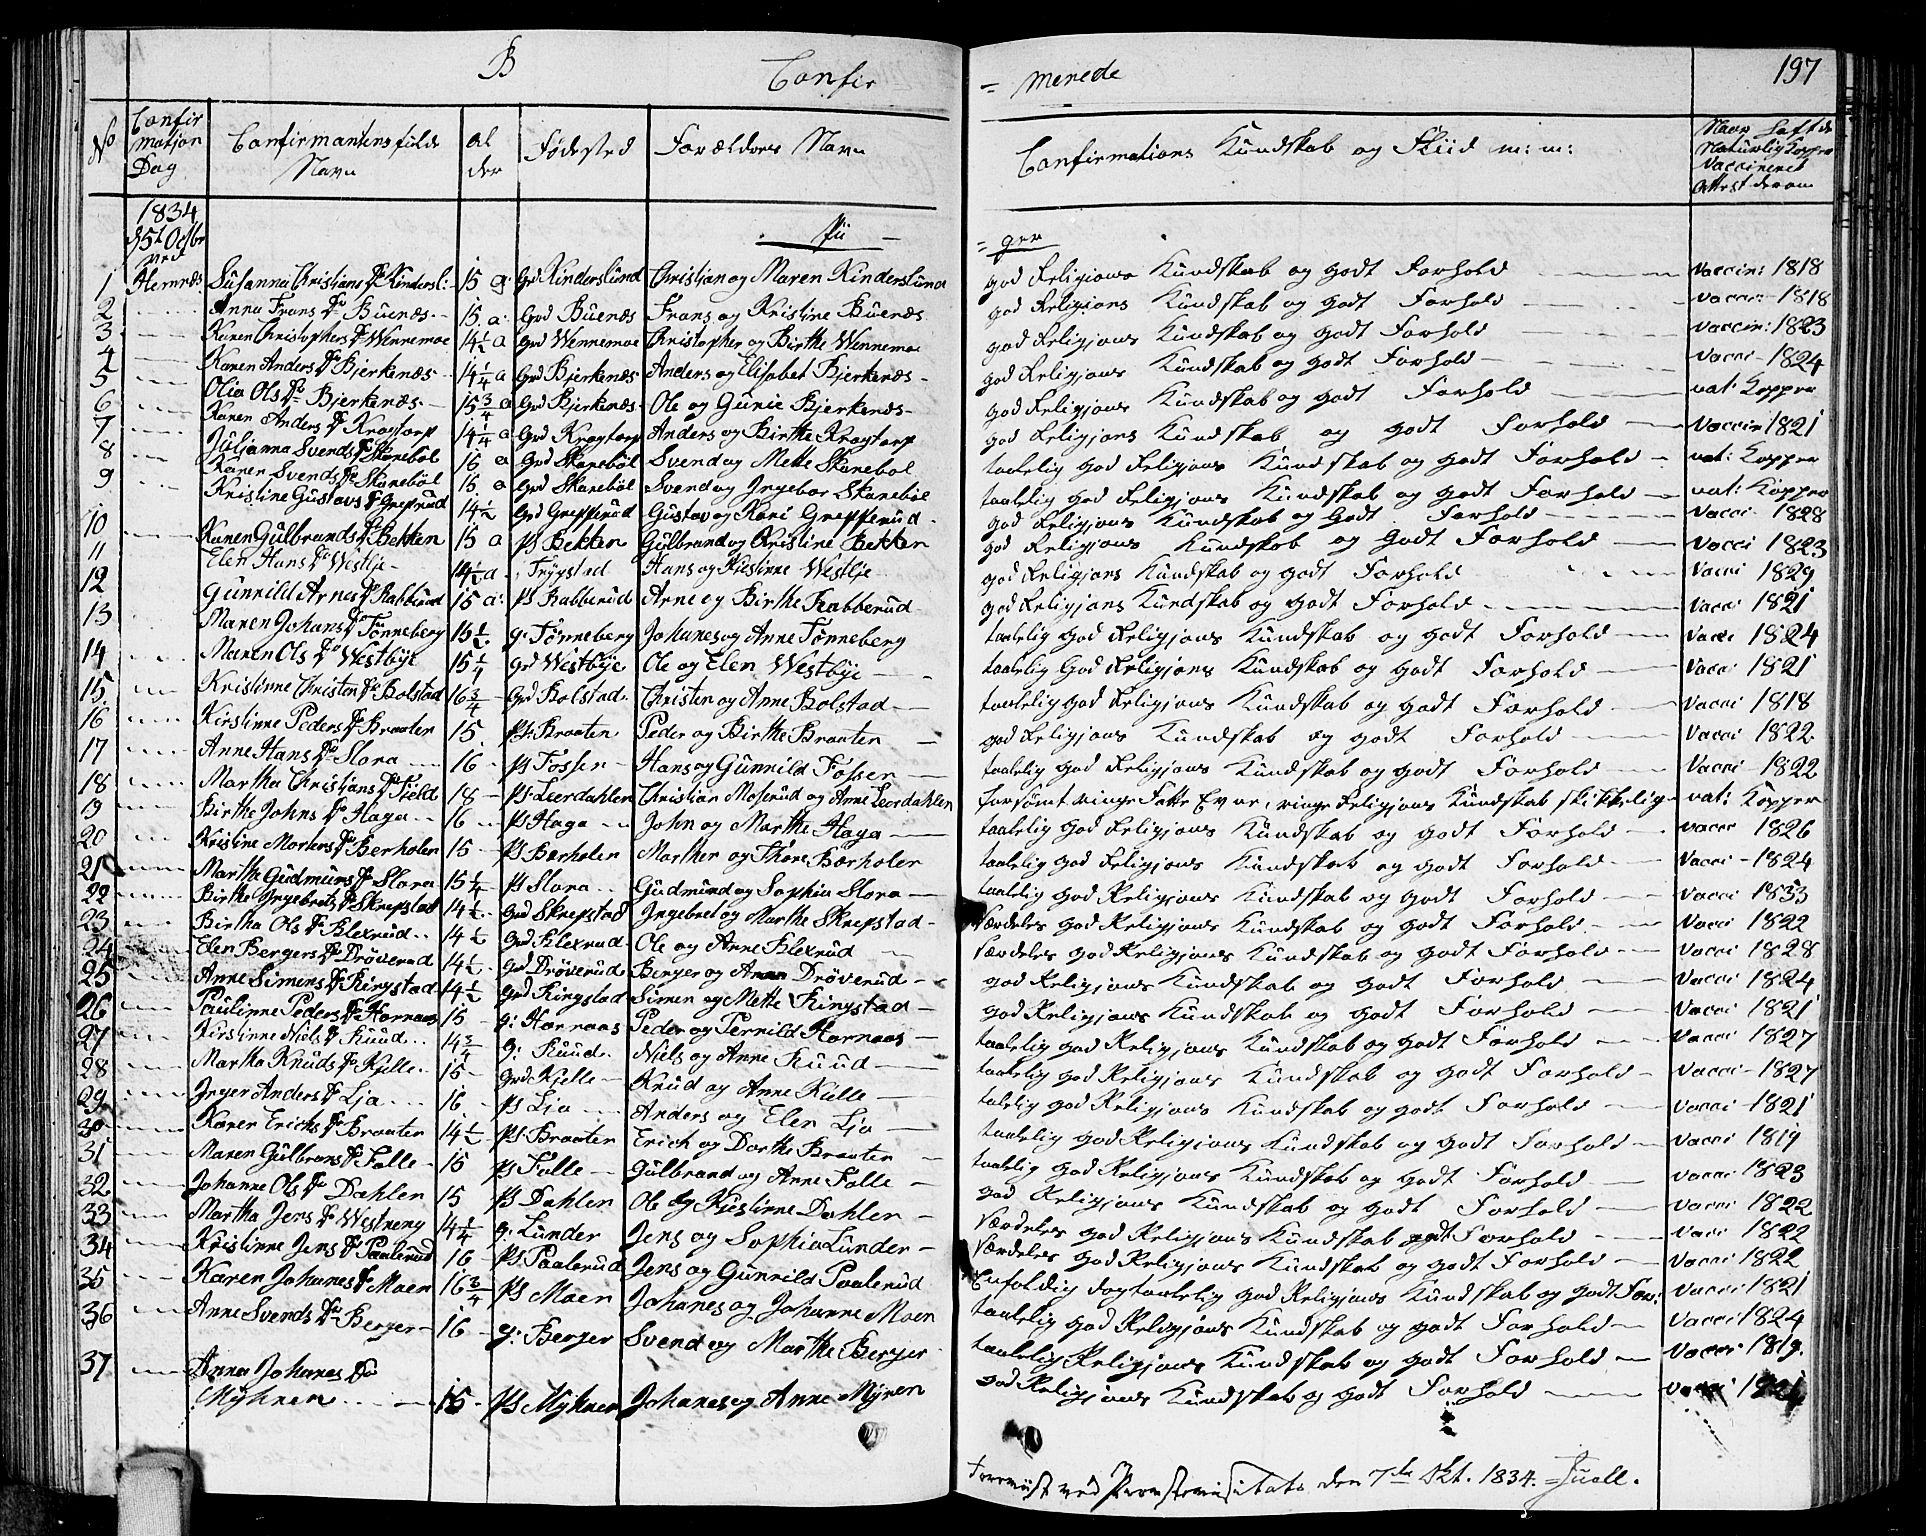 B Confir = merede 197
No Confirmatjon Dag Confirmantens fulde Navn Alder Fødested Forældres Navn Confirmations Kundskab og Fliid m: m: Naar haft de Naturlig Kopper Vaccineret Attest derom
1834
5t Octbr
ved
Pi = ger
1 Hemnæs Susanna Christians Dr Kindersl: 15 a: Grd Kinderslund Christjan og Maren Kinderslund god Religjons Kundskab og godt Forhold Vaccin: 1818
2 Anna Frans Dr Buenæs 15 a: Grd Buenæs Frans og Kristine Buenæs god Religjons Kundskab og godt Forhold vaccin 1818
3 Karen Christophers Dr Wennemoe 14½ a Grd Wennemoe Christopher og Birthe Wennemoe god Religjons Kundskab og godt Forhold Vaccin: 1823
4 Karen Anders Dr Bjerkenæs 14¼ a Grd Bjerkenæs Anders og Elisabet Bjerkenæs god Religjons Kundskab og godt Forhold Vacci 1824
5 Olia Ols Dr Bjerkenæs 15¾ a Grd Bjerkenæs Ole og Gunie Bjerkenæs god Religjons Kundskab og godt Forhold nat: Kopper
6 Karen Anders Dr Kragtorp 14¼ a Grd Kragtorp Anders og Birthe Kragtorp god Religjons Kundskab og godt Forhold Vaccin 1821
7 Juljanna Svends Dr Skanebøl 16 a Grd Skanebøl Svend og Mette Skanebøl taalelig god Religjons Kundskab og godt Forhold nat: Kopper
8 Karen Svends Dr Skanebøl 15 a Grd Skanebøl Svend og Ingebor Skanebøl taalelig god Religjons Kundskab og godt Forhold nat: Kopper
9 Kristine Gustavs Dr Greprud 14½ Grd Grepperud Gustav og Kari Grepperud god Religjons Kundskab og Godt Forhold Vacci 1828
10 Karen Gulbrands Dr Bekken 15 a Ps Bekken Gulbrand og Kristine Bekken god Religjons Kundskab og Godt Forhold Vacci 1823
11 Elen Hans Dr Westlje 14½ a Trygstad Hans og Kjestinne Westlje god Religjons Kundskab og godt Forhold Vacci 1829
12 Gunnild Arnes Dr Rabberud 15 a: Ps Rabberud Arne og Birthe Rabberud god Religjons Kundskab og godt Forhold Vacci 1821
13 Maren Johans Dr Tønneberg 15½ g: Tønneberg Johanes og Anne Tønneberg taalelig god Religjons Kundskab og godt Forhold Vacci 1824
14 Maren Ols Dr Westbye 15¼ Grd Westbye Ole og Elen Westbye taalelig God Religjons Kundskab og godt Forhold Vacci 1821
15 Kristinne Christen Dr Bolstad 16¾ Grd Bolstad Christen og Anne Bolstad taalelig god Religjons Kundskab og godt Forhold Vacci 1818
16 Kirstinne Peders Dr Braaten 15 Ps: Braaten Peder og Birthe Braaten god Religjons Kundskab og godt Forhold Vacci 1822
17 Anne Hans Dr Slora 16 Ps Fosser Hans og Gunnild Fosser taalelig god Religjons Kundskab og godt Forhold Vacci 1822
18 Martha Christjans Dr Fjeld 18 Ps: Leerdahlen Christian Moserud og Anne Leerdahlen forsømt ringe Fatte Evne, ringe Religjons Kundskab skikkelig nat: Kopper
19 Birthe Johns Dr Haga 16 Ps Haga John og Marthe Haga taalelig god Religjons Kundskab og godt Forhold Vacci 1826
20 Kristine Mortens Dr Berholen 15 Ps Berholen Morthen og Thore Bærholen taalelig god Religjons Kundskab og godt Forhold Vacci 1824
21 Martha Gudmuns Dr Slora 15¼ Ps Slora Gudmund og Sophia Slora taalelig god Religjons Kundskab og godt Forhold Vacci 1833
22 Birthe Ingebrets Dr Skrepstad 14½ Grd Skrepstad Ingebret og Marthe Skrepstad Særdeles god Religjons Kundskab og godt Forhold Vacci 1822
23 Birthe Ols Dr Klexrud 14½ Grd Klexrud Ole og Anne Klexrud Særdeles god Religjons Kundskab og godt Forhold Vacci 1828
24 Elen Bergers Dr Drøverud 14½ Grd Drøverud Berger og Anne Drøverud god Religjons Kundskab og godt Forhold Vacci 1824
25 Anne Simens Dr Ringstad 14½ Grd Ringstad Simen og Mette Ringstad god Religjons Kundskab og godt Forhold Vacci 1821
26 Paulinne Peders Dr Hornaas 15 g: Hornaas Peder og Pernild Hornaas taalelig god Religjons Kundskab og godt Forhold Vacci 1827
27 Kirstinne Niels Dr Ruud 14¾ g: Ruud Niels og Anne Ruud taalelig god Religjons Kundskab og godt Forhold Vacci 1827
28 Martha Knuds Dr Kjelle 15 Grd Kjelle Knud og Anne Kielle taalelig god Religjons Kundskab og godt Forhold Vacci 1821
29 Inger Anders Dr Lja 16 Ps Lja Anders og Elen Lja taalelig god Religjons Kundskab og godt Forhold Vacci 1819
30 Karen Ericks Dr Braaten 14½ Ps: Braaten Erick og Dorthe Braaten taalelig god Religjons Kundskab og godt Forhold Vacci 1823
31 Maren Gulbrans Dr Falle 15 Ps Falle Gulbrand og Anne Falle god Religjons Kundskab og godt Forhold Vacci 1822
32 Johanne Ols Dr Dahlen 15 Ps Dahlen Ole og Kjestinne Dahlen Særdeles god Religjons Kundskab godt Forhold Vacci 1822
33 Martha Jens Dr Westreng 14¼ g: Lunder Jens og Sophia Lunder Særdeles god Religjons Kundskab og godt Forhold Vacci 1822
34 Kristinne Jens Dr Paalerud 16 Ps Paalerud Jens og Gunnild Paalerud Enfoldig dog taalelig god Religjons Kundskab og godt For: Vacci 1821
35 Karen Johanes Dr Moen 16¾ Ps Moen Johanes og Johanne Moen taalelig god Religjons Kundskab og godt Forhold Vacci 1824
36 Anne Svends Dr Berger 16 g: Berger Svend og Marthe Berger taalelig Religjons Kundskab og godt Forhold Vacci 1819
37 Anna Johanes Dr
Myhren 15 Ps Myhren Johanes og Anne Myren god Religjons Kundskab og godt Forhold Vacci
Foreviist ved Provstevisitats den 7de Okt. 1834. Juell.